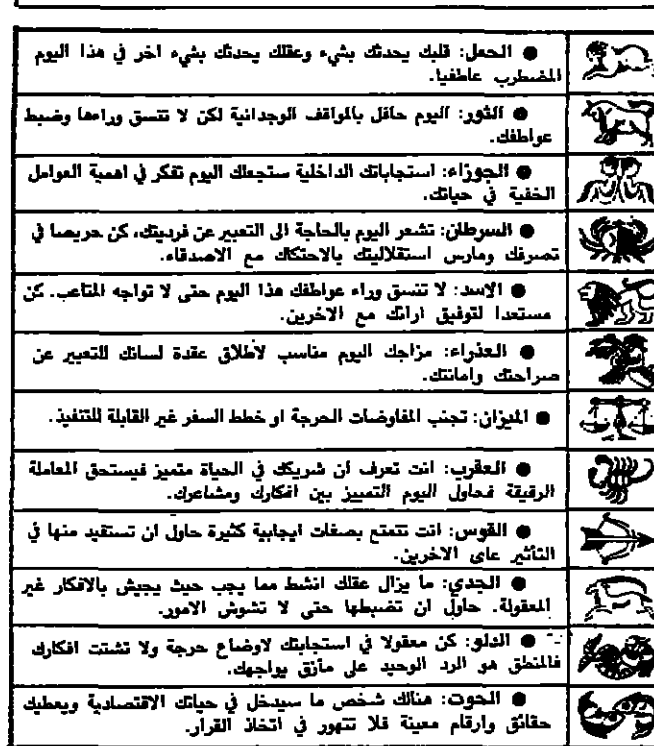 ● الحمل: قلبك يحدثك بشيء وعقلك يحدثك بشيء اخر في هذا اليوم
المضطرب عاطفيا.
● الثور: اليوم حافل بالمواقف الوجدانية لكن لا تتسق وراءها وضبط
عواطفك.
● الجوزاء: استجاباتك الداخلية ستجعلك اليوم تفكر في اهمية العوامل
الخفية في حياتك.
● السرطان: تشعر اليوم بالحاجة الى التعبير عن فرديتك، كن حريصا في
تصرفك ومارس استقلاليتك بالاحتكاك مع الاصدقاء.
● الاسد: لا تنسق وراء عواطفك هذا اليوم حتى لا تواجه المتاعب. كن
مستعدا لتوفيق ارائك مع الاخرين.
● العذراء: مزاجك اليوم مناسب لاطلاق عقدة لسانك للتعبير عن
صراحتك وامانتك.
● الميزان: تجنب المفاوضات الحرجة او خطط السفر غير القابلة للتنفيذ.
● العقرب: انت تعرف ان شريكك في الحياة متميز فيستحق المعاملة
الرقيقة فحاول اليوم التمييز بين افكارك ومشاعرك.
● القوس: انت تتمتع بصفات ايجابية كثيرة حاول ان تستفيد منها في
التأثير على الاخرين.
● الجدي: ما يزال عقلك انشط مما يجب حيث يجيش بالافكار غير
المعقولة. حاول ان تضبطها حتى لا تشوش الامور.
● الدلو: كن معقولا في استجابتك لاوضاع حرجة ولا تشتت افكارك
فالمنطق هو الرد الوحيد على مأزق يواجهك.
● الحوت: هنالك شخص ما سيدخل في حياتك الاقتصادية ويعطيك
حقائق وارقام معينة فلا تتهور في اتخاذ القرار.